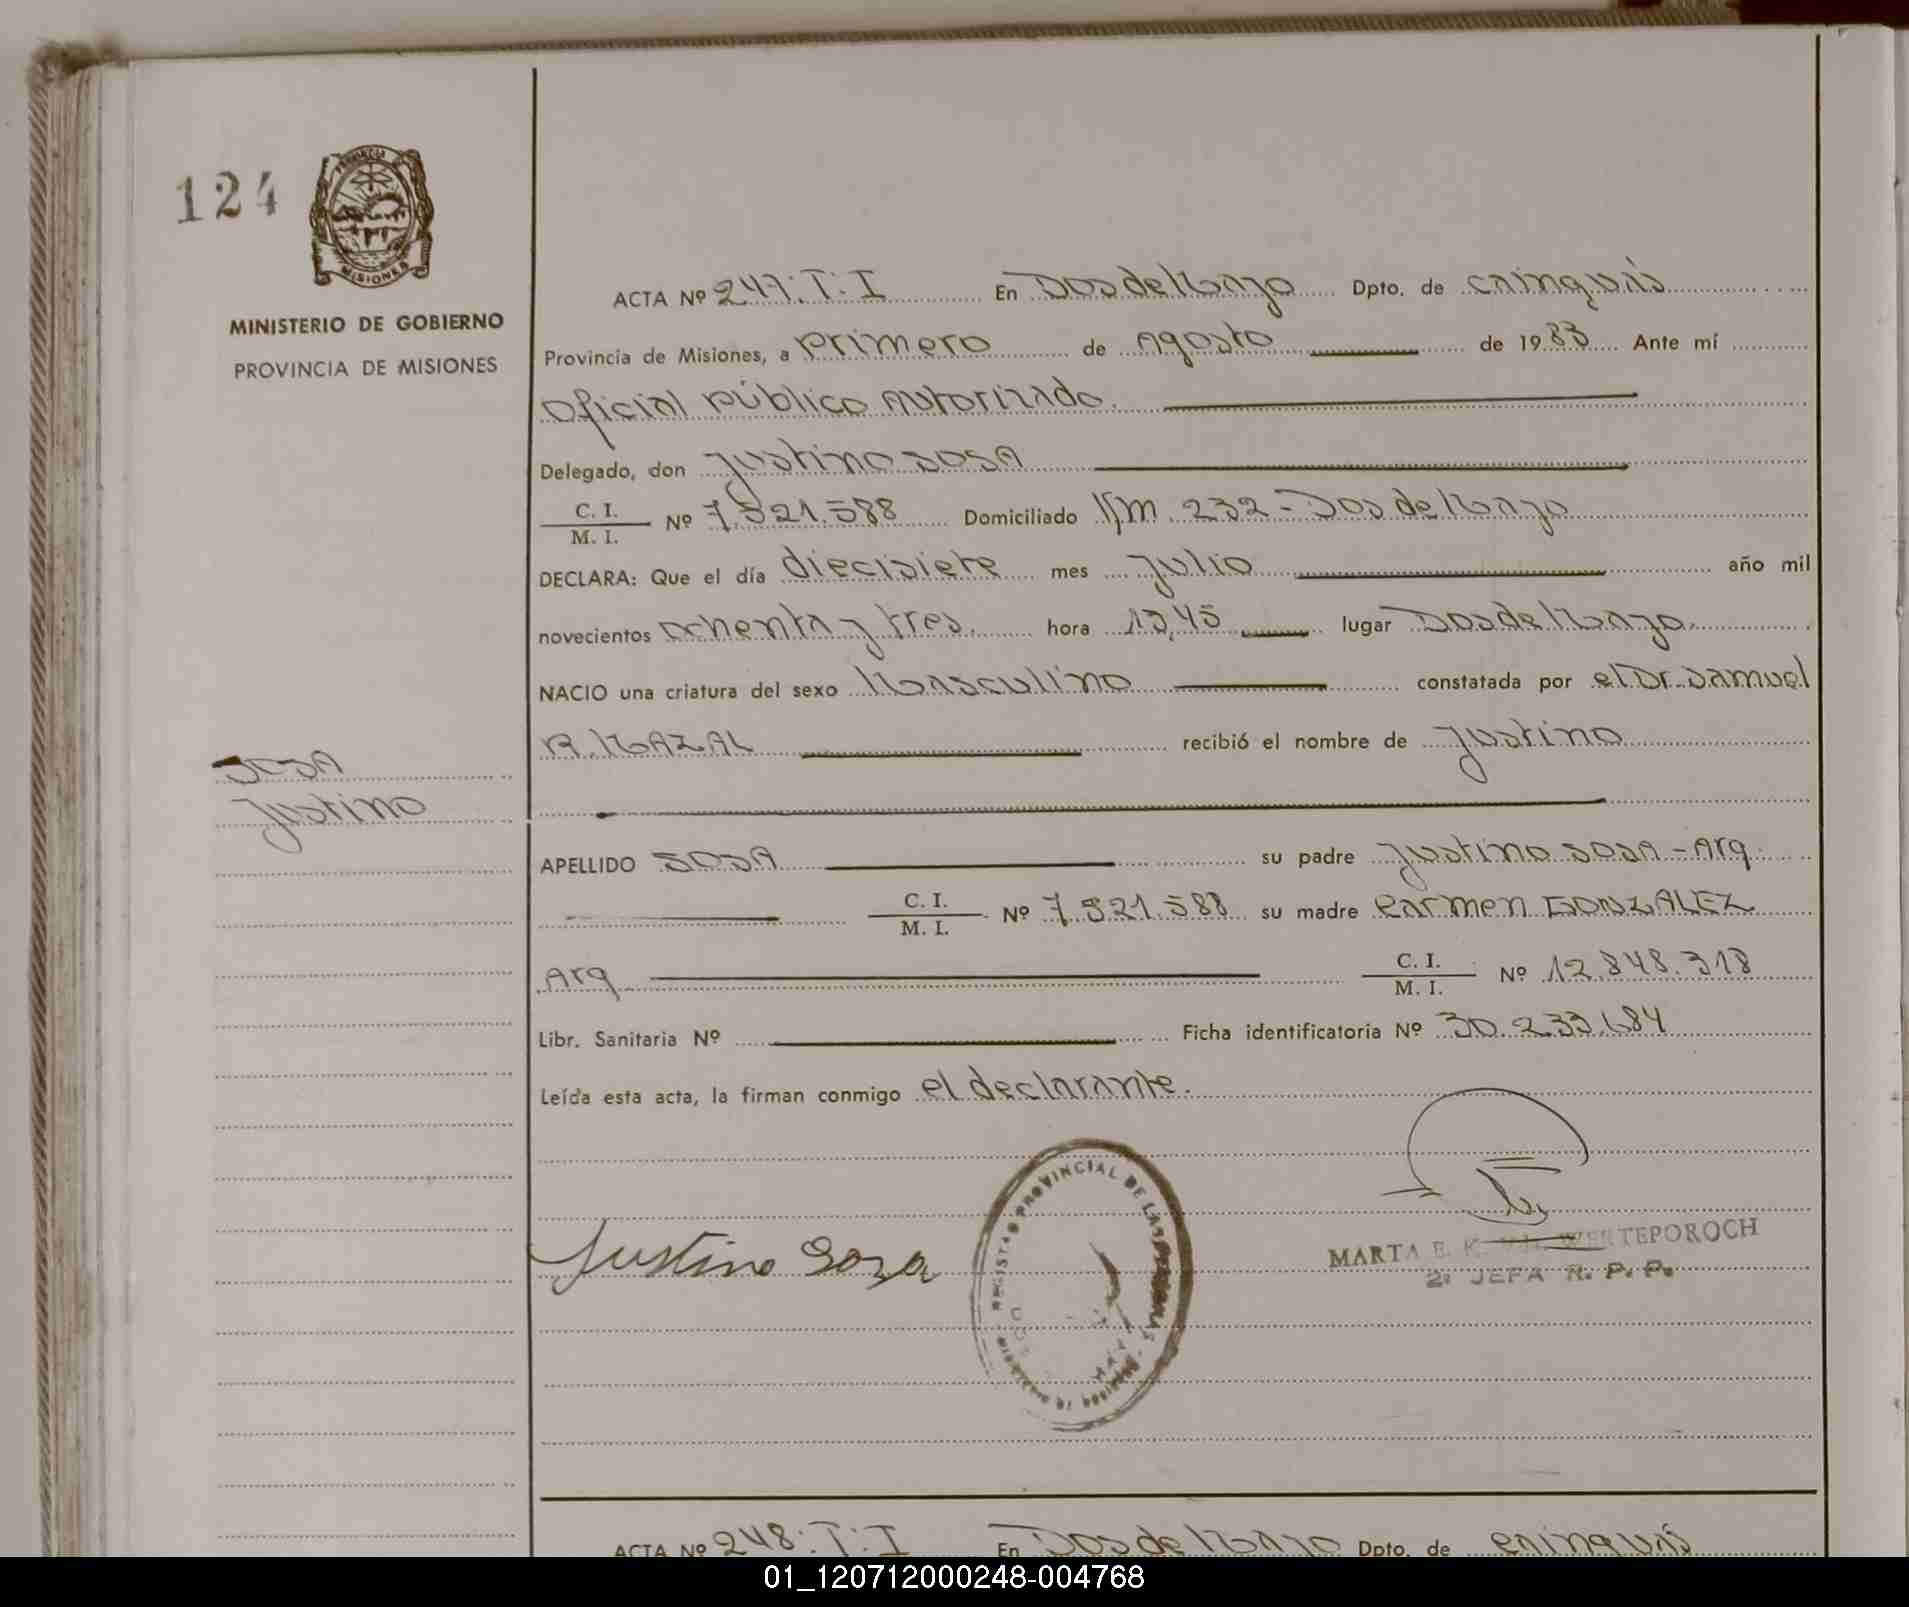 124
PROVINCIA DE
MISIONES
MINISTERIO DE GOBIERNO
PROVINCIA DE MISIONES
ACTA Nº 247: T: I En Dos de Mayo Dpto. de Cainguás
Provincia de Misiones, a primero de Agosto de 1983 Ante mí
Oficial Público Autorizado.
Delegado, don Justino SOSA
C. I.
M. I.
Nº 7.521.588 Domiciliado Km 232 - Dos de Mayo
DECLARA: Que el día diecisiete mes Julio año mil
novecientos ochenta y tres. hora 13,45 lugar Dos de Mayo.
NACIO una criatura del sexo Masculino constatada por el Dr. Samuel
R. MAZAL recibió el nombre de Justino
SOSA
Justino
APELLIDO SOSA su padre Justino SOSA - Arg.
C. I.
M. I.
Nº 7.521.588 su madre Carmen GONZALEZ
Arg
C. I.
M. I.
Nº 12.848.318
Libr. Sanitaria Nº Ficha identificatoria Nº 30.233.684
Leída esta acta, la firman conmigo el declarante.
Justino Soza
REGISTRO PROVINCIAL DE LAS PERSONAS
MARTA E. K. WERTEPOROCH
2º JEFA R. P. P.
ACTA Nº 248: T: I En Dos de Mayo Dpto. de Cainguás
01_120712000248-004768